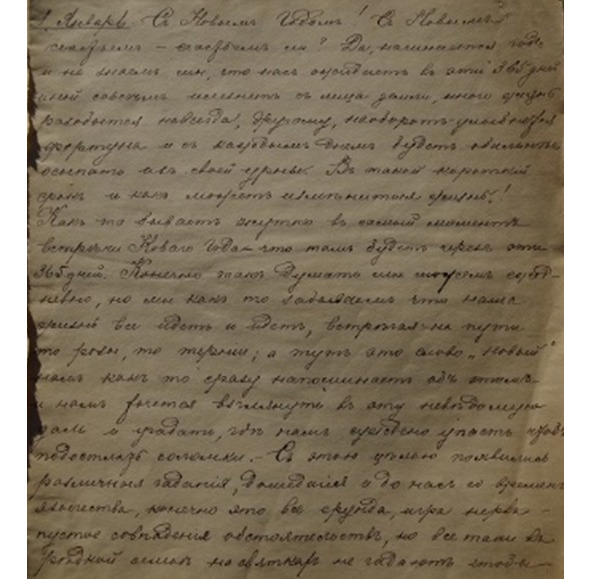 1 Январь. Съ Новымъ Годомъ! Съ Новымъ
счастьемъ – счастьемъ ли? Да, начинается годъ
и не знаемъ мы, что насъ ожидаетъ въ эти 365 дней
иной совсѣмъ исчезнетъ съ лица земли, иного жизнь
разобьется навсегда, другому, наоборотъ улыбнется
фортуна и съ каждымъ днемъ будетъ обильнѣе
осыпать изъ своей урны. Въ такой короткій
срокъ и какъ можетъ измѣниться жизнь!
Какъ то бываетъ жутко въ самый моментъ
встрѣчи Новаго Года – что тамъ будетъ черезъ эти
365 дней. Конечно такъ думать мы можемъ ежед-
невно, но мы какъ то забываемъ что наша
жизнь все идетъ и идетъ, встрѣчая на пути
то розы, то терніи; а тутъ это слово „новый"
намъ какъ то сразу напоминаетъ объ этомъ –
и намъ хочется взглянуть въ эту невѣдомую
даль и угадать, гдѣ намъ суждено упасть чтобъ
подостлать соломки. – Съ этою цѣлью появились
различныя гаданія, дошедшія и до насъ со временъ
язычества, конечно это все ерунда, игра нервъ –
пустое совпаденія обстоятельствъ, но все таки въ
рѣдкой семьѣ на святкахъ не гадаютъ чтобы –